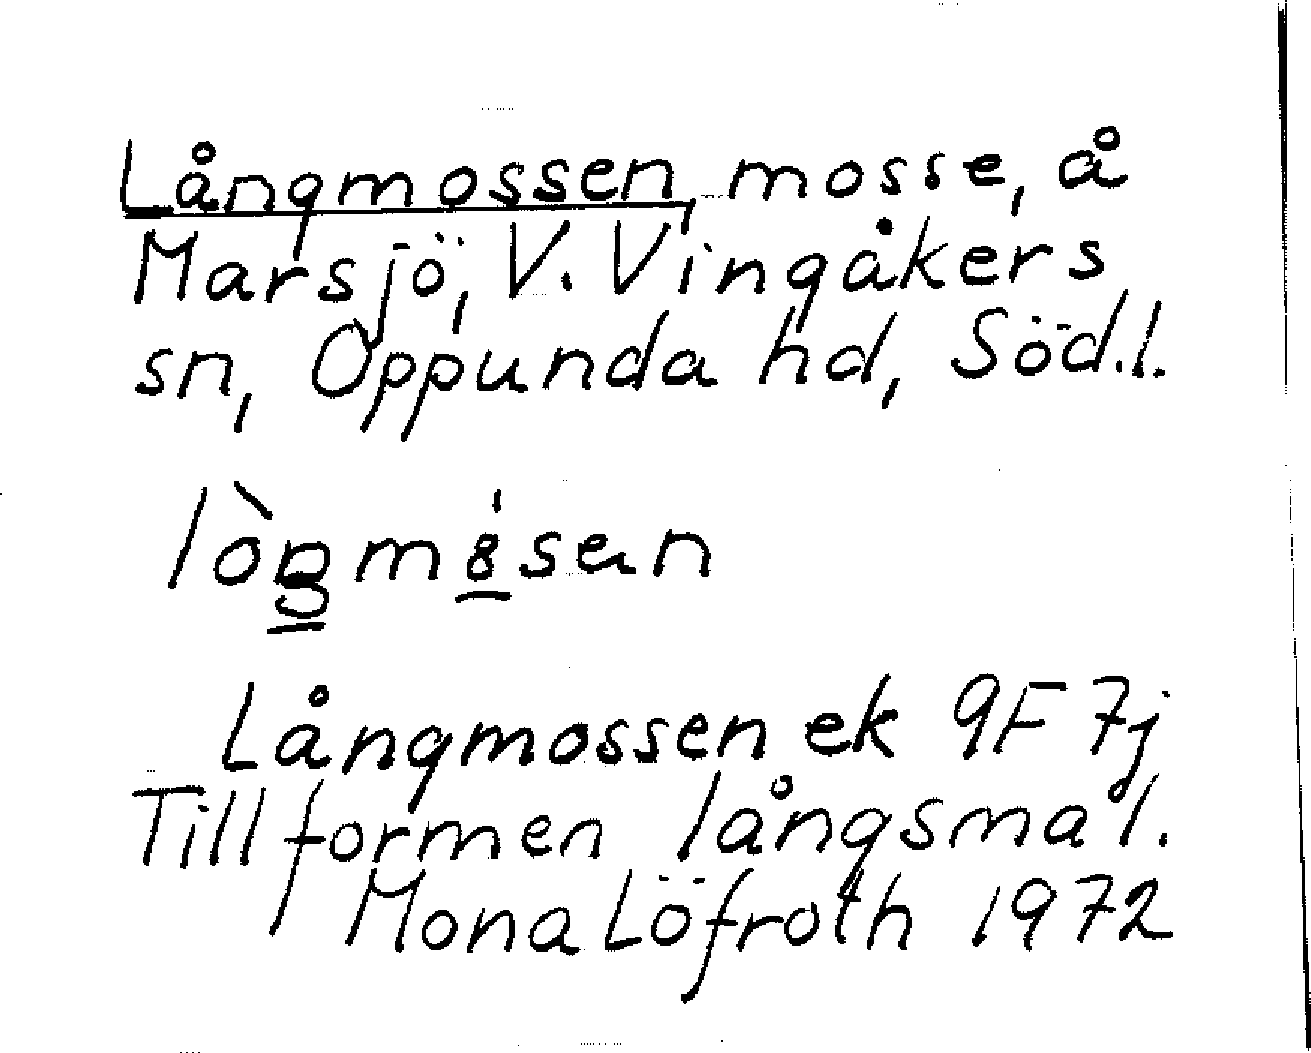 Långmossen, mosse, å
Marsjö, V. Vingåkers
sn, Oppunda hd, Söd.l.
Långmossen ek 9F 7j
Till formen långsmal.
Mona Löfroth 1972